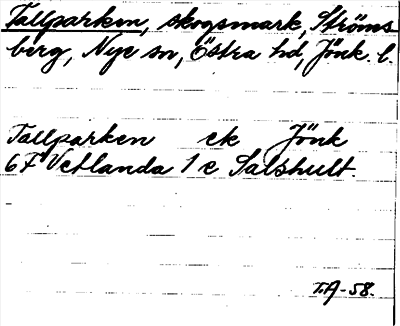 Tallparken, skogsmark, Ströms
berg, Nye sn, Östra hd, Jönk. l.
Tallparken ek Jönk
6F Vetlanda 1 e Salshult.
T.A-58.